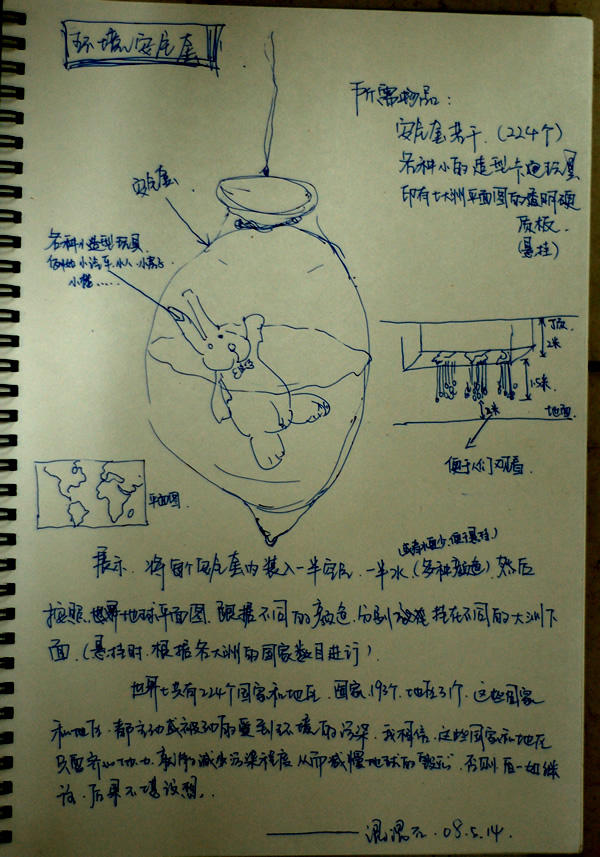 环境安全套
所需物品：
安全套若干.（224个）
各种小的造型卡通玩具
印有七大洲平面图的透明硬
质板.
(悬挂)
安全套
各种小造型玩具
例如小汽车.小人.小房子
小楼......
顶.
2米
1.5米
2米
地面.
便于人们观看.
平面图
(或者水更少,便于悬挂)
展示. 将每个安全套内装入一半空气.一半水.(多种颜色).然后
按照.世界地球平面图.跟据不同的颜色.分别 挂在不同的大洲下
面.(悬挂时.根据各大洲的国家数目进行)
世界上共有224个国家和地区.国家.193个.地区31个.这些国家
和地区.都主动或被动的受到环境的污染.我相信.这些国家和地区
只要齐心协力.
减少污染程度.从而减慢地球的"毁灭".否则.后一如继
往.后果不堪设想.
08.5.14.